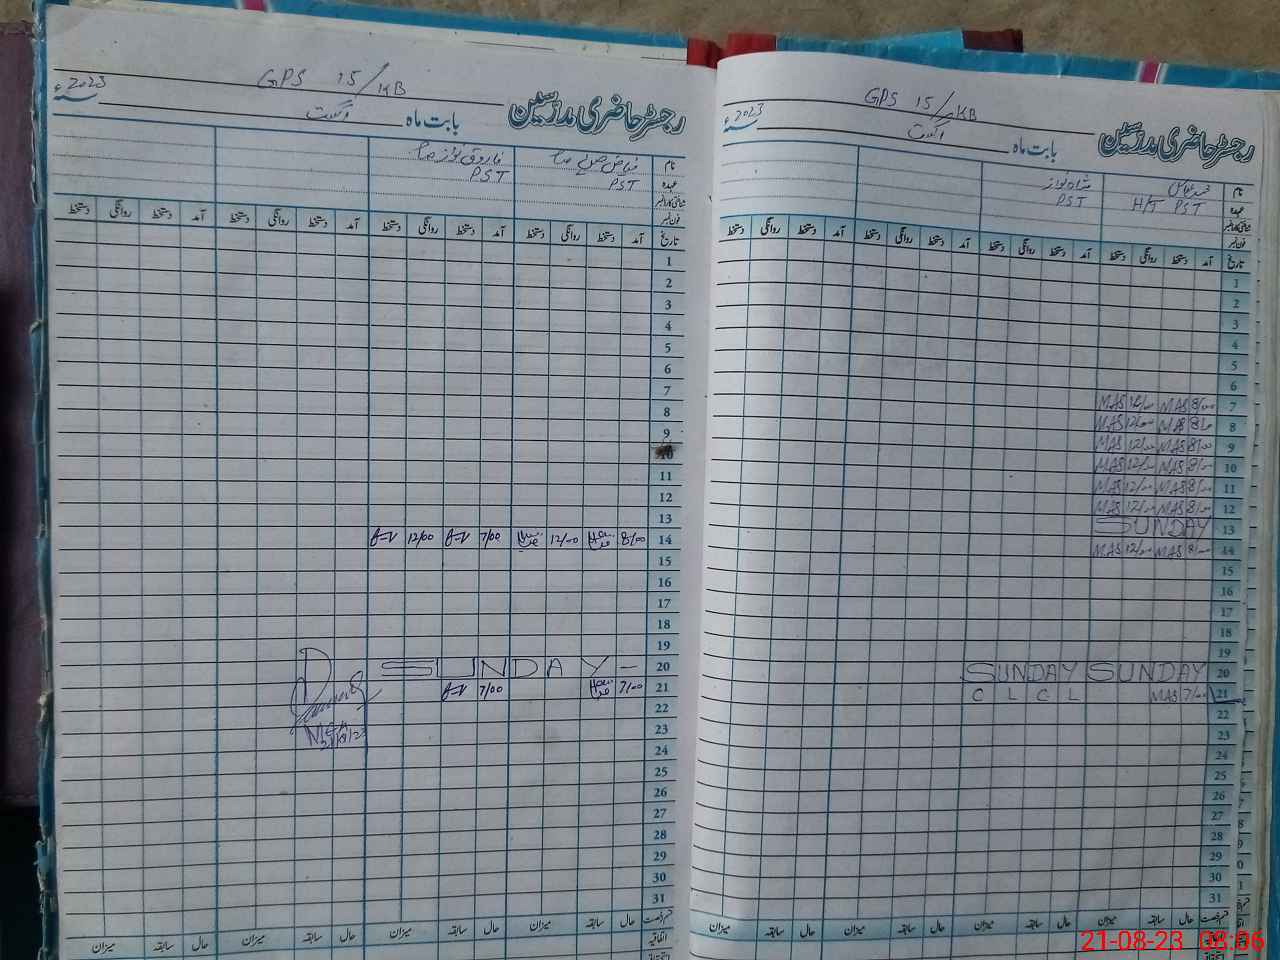 GPS 15/KB
2023ء
رجسٹر حاضری مدرسین
بابت ماہ اگست
نام
فاروق نواز
عہدہ PST PST
شناختی کارڈ نمبر
فون نمبر
تاریخ آمد دستخط روانگی دستخط آمد دستخط روانگی دستخط آمد دستخط روانگی دستخط آمد دستخط
1
2
3
4
5
6
7
8
9
10
11
12
13
14 8/00 12/00 7/00 12/00
15
16
17
18
19
20 SUNDAY –
21 7/00 7/00
22
23
24
25
26
27
28
29
30
31
حال سابقہ میزان حال سابقہ میزان حال سابقہ میزان حال سابقہ میزان
اتفاقیہ
MEA
GPS 15/KB
2023ء
رجسٹر حاضری مدرسین
بابت ماہ اگست
نام
شاہ نواز
عہدہ PST H/T PST
شناختی کارڈ نمبر
فون نمبر
تاریخ آمد دستخط روانگی دستخط آمد دستخط روانگی دستخط آمد دستخط روانگی دستخط آمد دستخط روانگی دستخط
1
2
3
4
5
6
7 8/00 MAS 12/00 MAS
8 8/00 MAS 12/00 MAS
9 8/00 MAS 12/00 MAS
10 8/00 MAS 12/00 MAS
11 8/00 MAS 12/00 MAS
12 8/00 MAS 12/00 MAS
13 SUNDAY
14 8/00 MAS 12/00 MAS
15
16
17
18
19
20 SUNDAY SUNDAY
21 7/00 MAS C L C L
22
23
24
25
26
27
28
29
30
31
حال سابقہ میزان حال سابقہ میزان حال سابقہ میزان حال سابقہ میزان
21-08-23 08:06